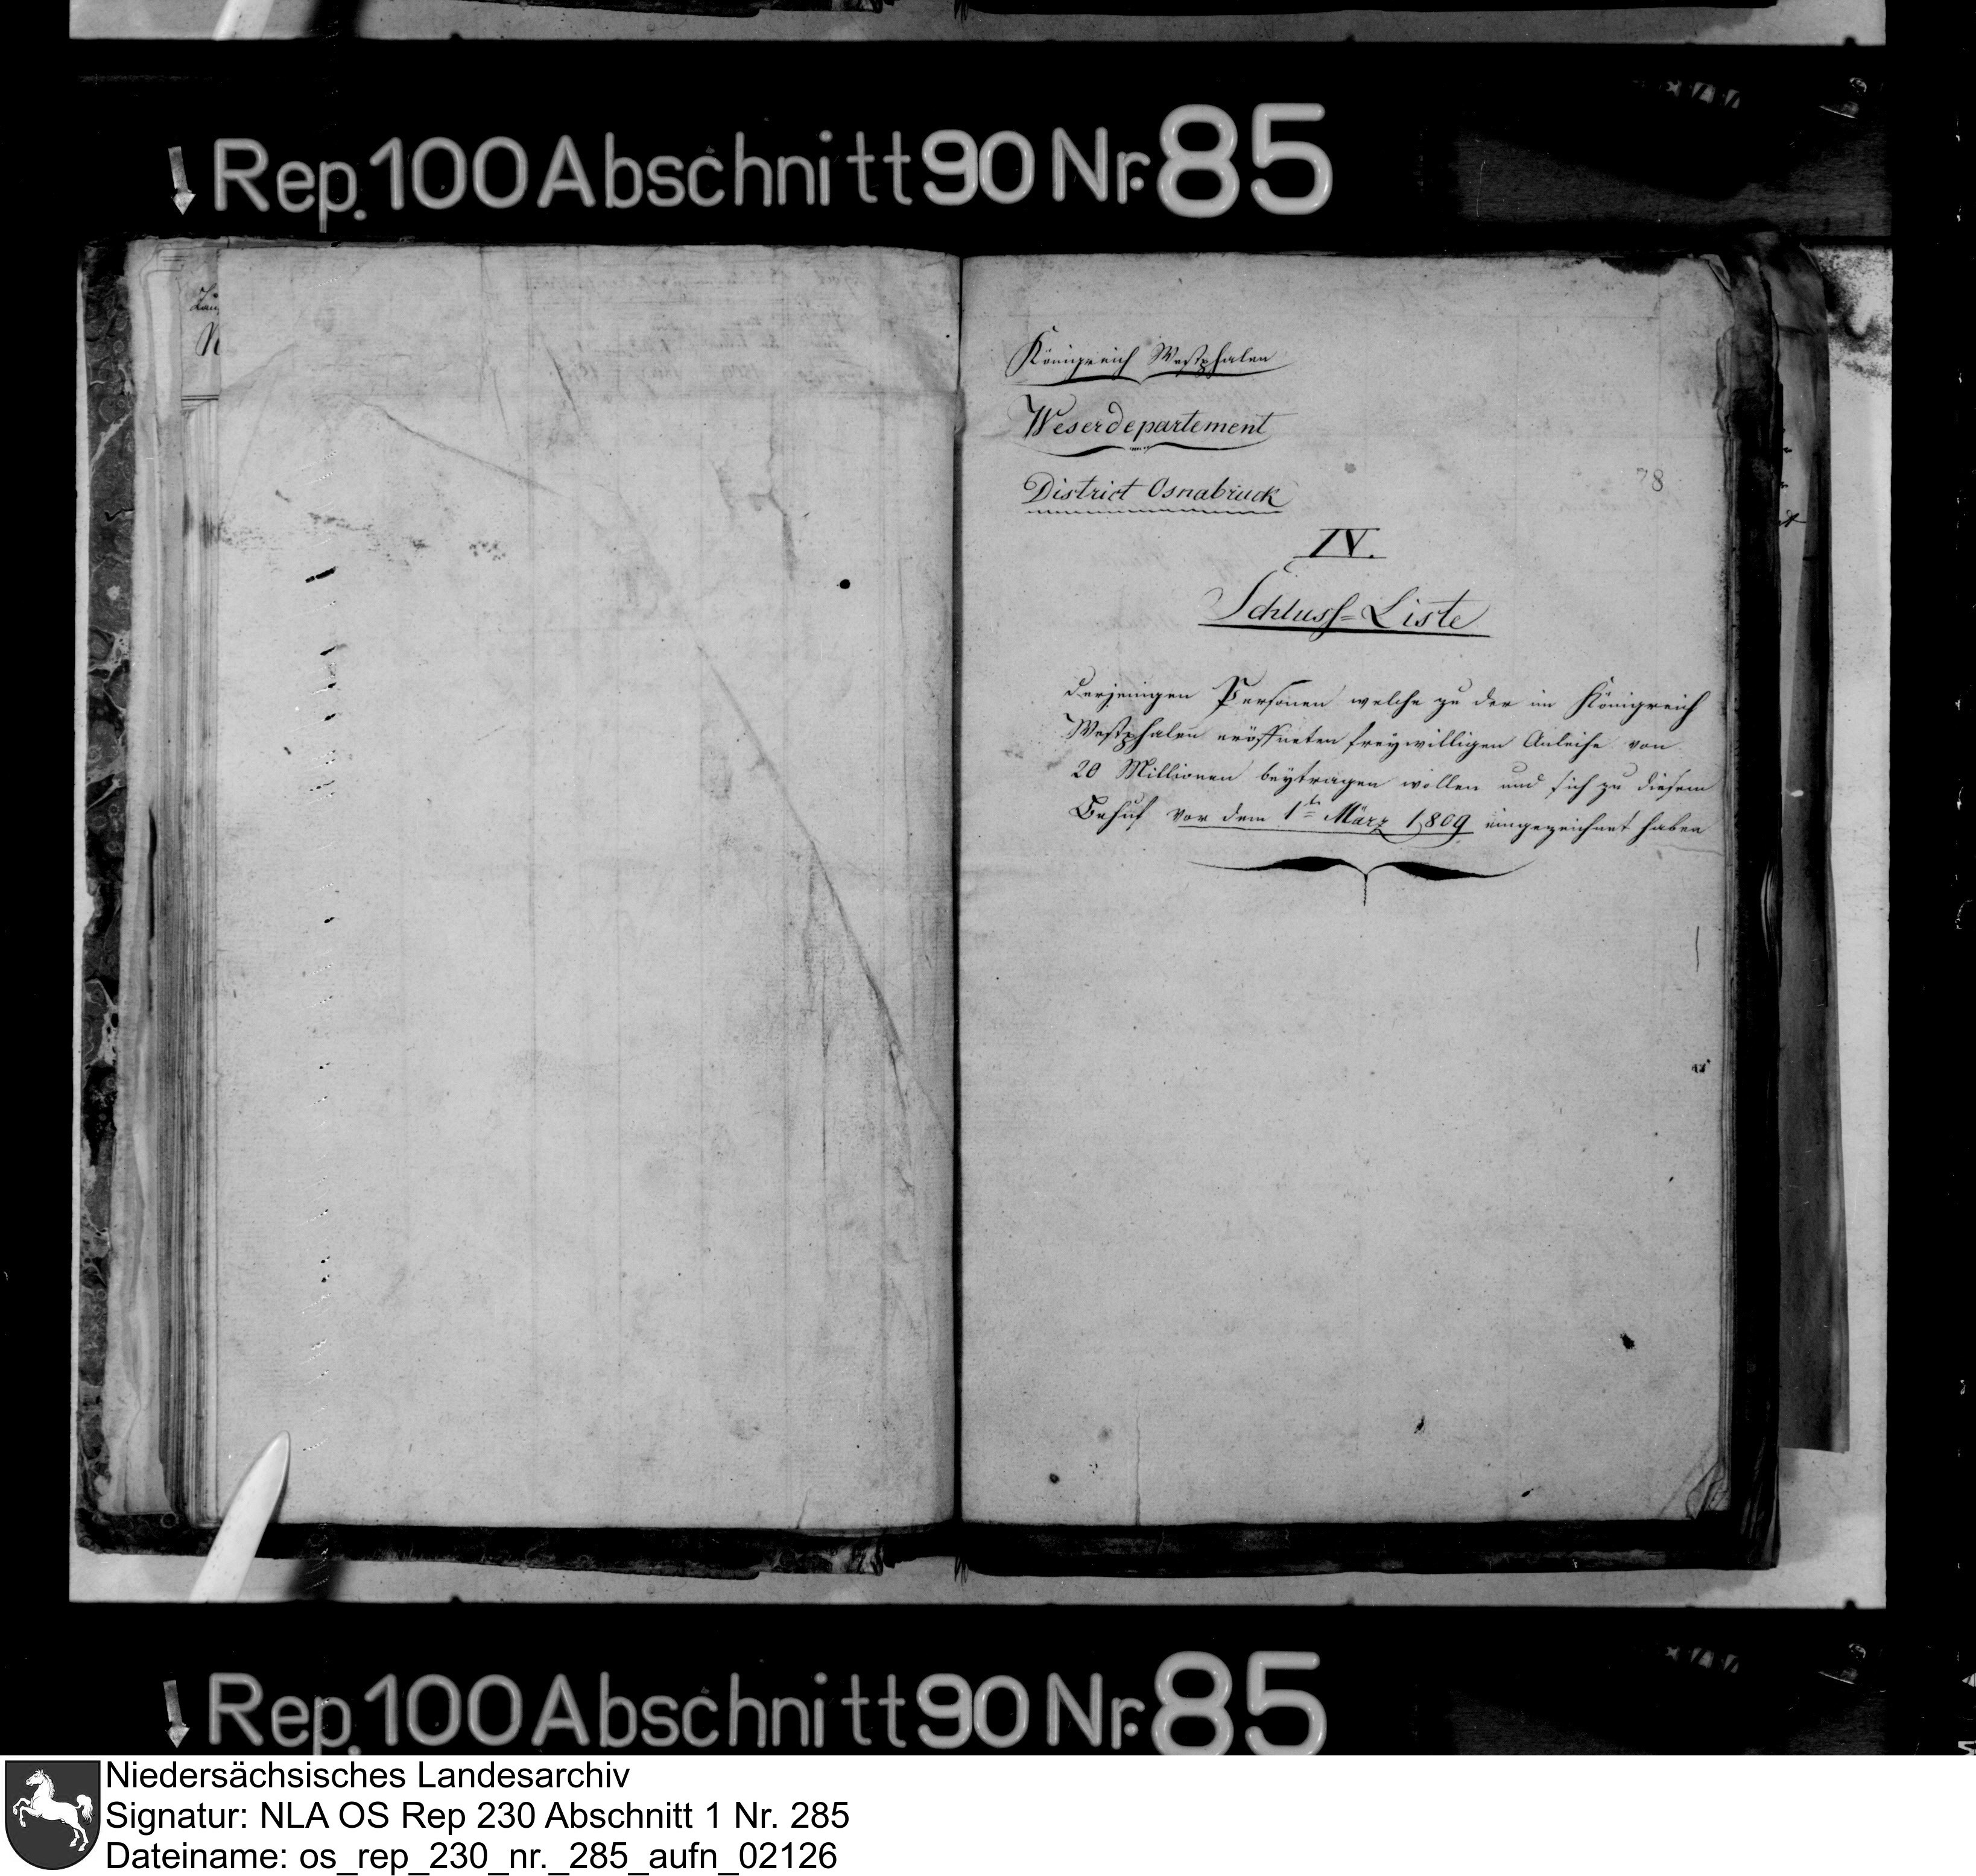 Rep. 100 Abschnitt 90 Nr. 85
Königreich Westphalen
Weserdepartement
District Osnabruck
78
IV.
Schluss=Liste
derjenigen Personen welche zu der im Königreich
Westphalen eröffneten freywilligen Anleihe von
20 Millionen beytragen wollen und sich zu diesem
Behuf vor dem 1ten März 1809 eingezeichnet haben
Rep. 100 Abschnitt 90 Nr. 85
Niedersächsisches Landesarchiv
Signatur: NLA OS Rep 230 Abschnitt 1 Nr. 285
Dateiname: os_rep_230_nr._285_aufn_02126